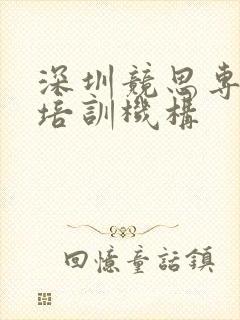 深圳競思專
培訓機構
回憶童話鎮